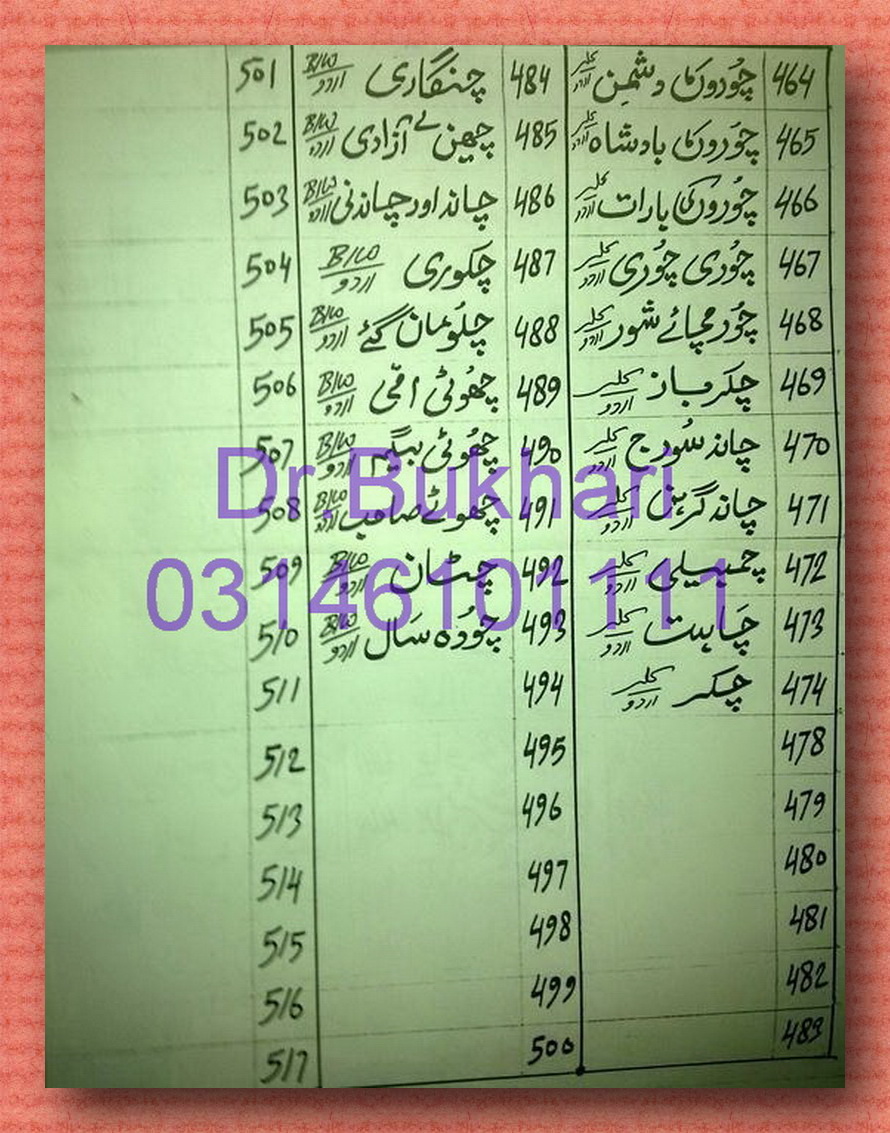 464 چوروں کا دشمن کلر اردو
465 چوروں کا بادشاہ کلر اردو
466 چوروں کی بارات کلر اردو
467 چوری چوری کلر اردو
468 چور مچائے شور کلر اردو
469 چکر باز کلر اردو
470 چاند سورج کلر اردو
471 چاند گرہن کلر اردو
472 چمبیلی کلر اردو
473 چاہت کلر اردو
474 چکر کلر اردو
478
479
480
481
482
483
484 چنگاری B/W اردو
485 چھین لے آزادی B/W اردو
486 چاند اور چاندنی B/W اردو
487 چکوری B/W اردو
488 چلو مان گئے B/W اردو
489 چھوٹی امی B/W اردو
490 چھوٹی بیگم B/W اردو
491 چھوٹے صاحب B/W اردو
492 چٹان B/W اردو
493 چودہ سال B/W اردو
494
495
496
497
498
499
500
501
502
503
504
505
506
507
508
509
510
511
512
513
514
515
516
517
Dr.Bukhari
03146101111